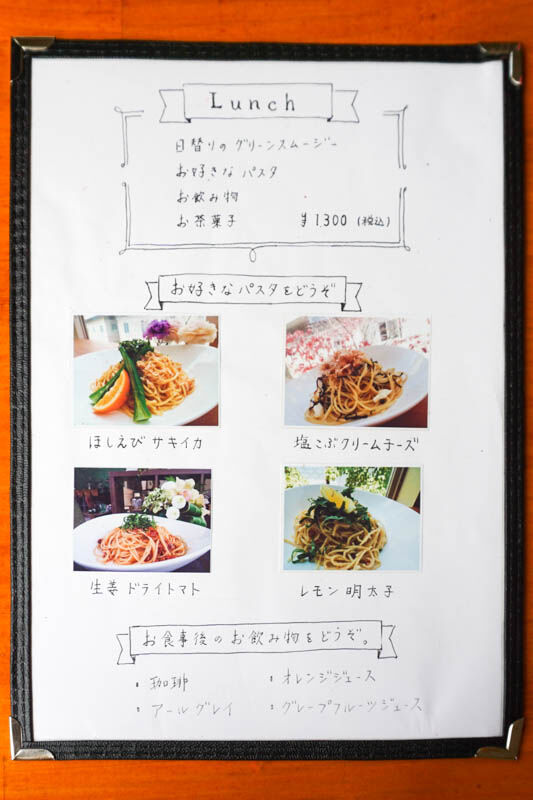 Lunch
日替りのグリーンスムージー
お好きなパスタ
お飲み物
お茶菓子 ¥1,300 (税込)
お好きなパスタをどうぞ
ほしえび サキイカ
塩こぶクリームチーズ
生姜 ドライトマト
レモン 明太子
お食事後のお飲み物をどうぞ。
・珈琲 ・オレンジジュース
・アールグレイ ・グレープフルーツジュース